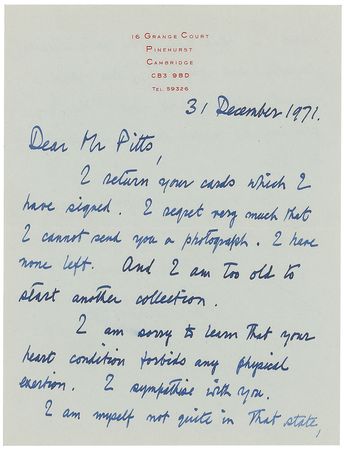 16 GRANGE COURT
PINEHURST
CAMBRIDGE
CB3 9BD
TEL. 59326
31 December 1971.
Dear Mr Pitts,
I return your cards which I
have signed. I regret very much that
I cannot send you a photograph. I have
none left. And I am too old to
start another collection.
I am sorry to learn that your
heart condition forbids any physical
exertion. I sympathise with you.
I am myself not quite in that state,